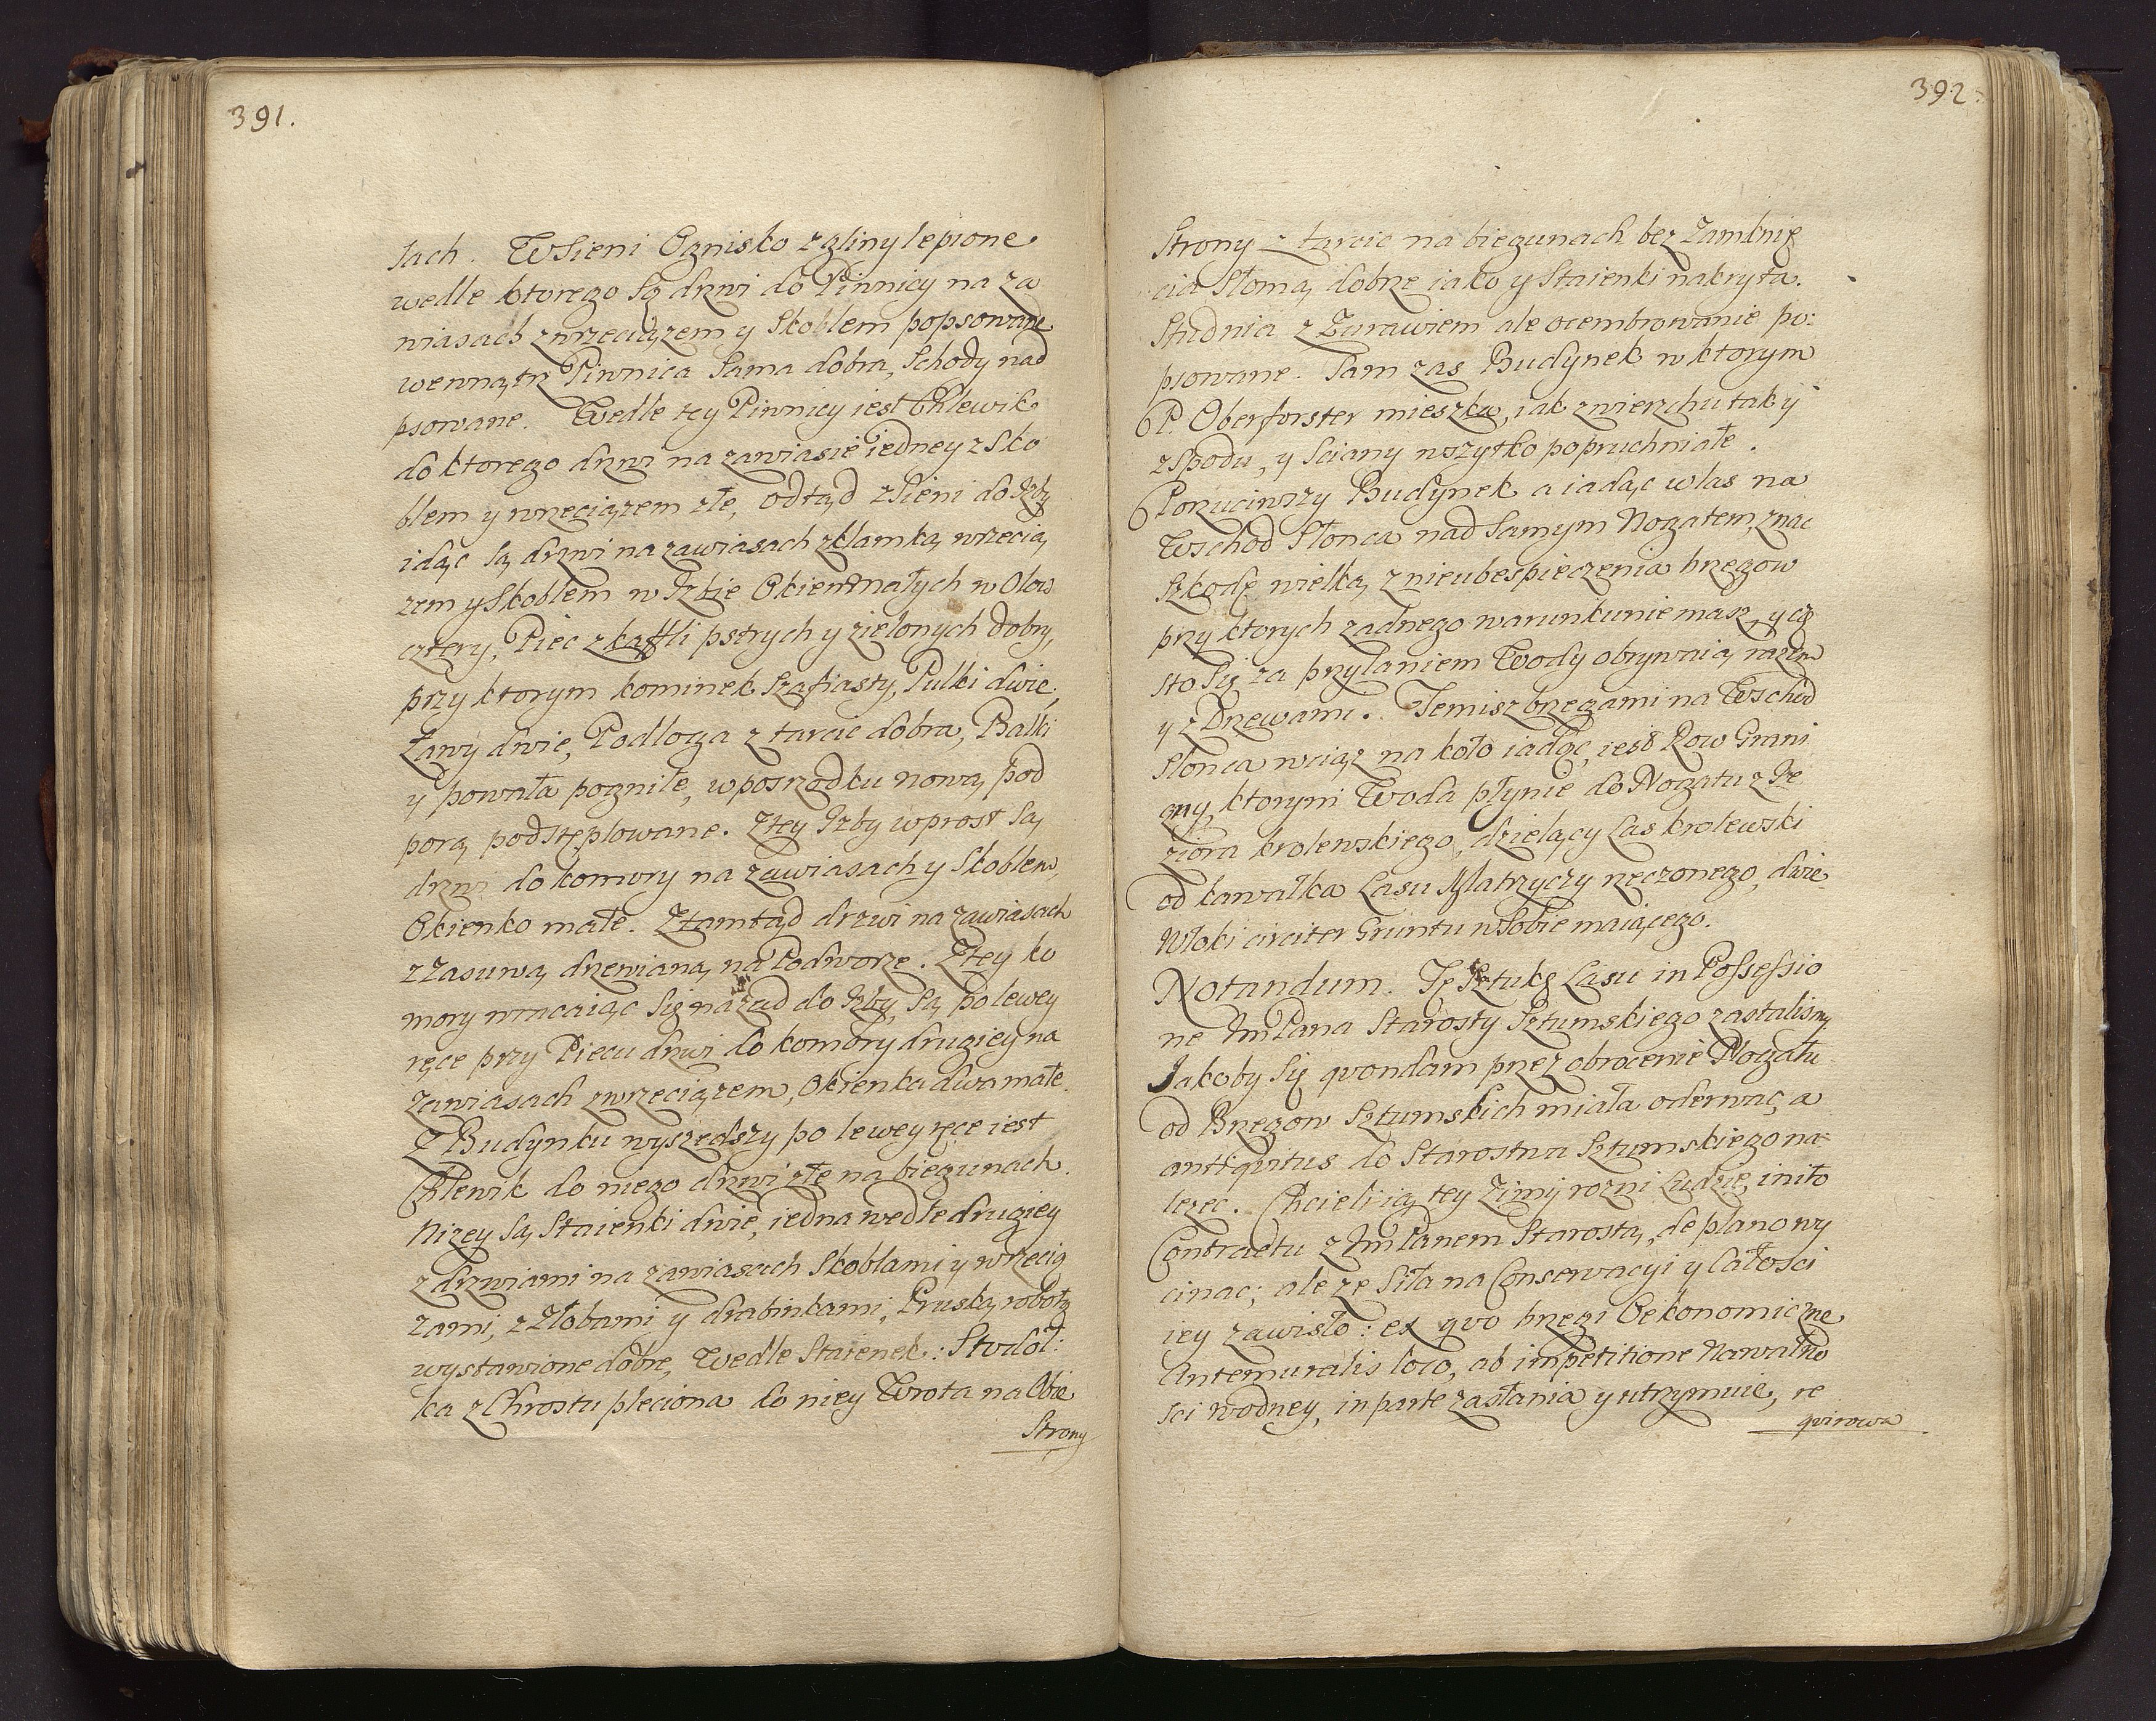 391.
sach. W Sieni Ognisko z gliny lepione
wedle ktorego Są drzwi do Piwnicy na za
wiasach z wrzeciązem y Skoblem popsowane
wewnątrz Piwnica Sama dobra, Schody nad
psowane. Wedle tey Piwnicy iest Chlewik
do ktorego drzwi na zawiasie iedney z Sko
blem y wrzeciązem złe, odtąd z Sieni do Izby
idąc Są drzwi na zawiasach z klamką wrzecią
zem y Skoblem w Izbie Okien małych w Ołow
cztery, Piec z kaffli pstrych y zielonych dobry,
przy ktorym kominek Szafiasty, Pułki dwie,
Ławy dwie, Podłoga z tarcic dobra, Balki
y powała pogniłe, w posrzodku nową pod
porą podstęplowane. Z tey Izby wprost Są
drzwi do komory na zawiasach y Skoblem,
Okienko małe. Ztamtąd drzwi na zawiasach
z Zasuwą drzewianą na Podworze. Z tey ko
mory wracaiąc Się nazad do Izby, Są po lewey
ręce przy Piecu drzwi do komory drugiey na
Zawiasach z wrzeciązem, Okienka dwa małe.
Z Budynku wyszedszy po lewey ręce iest
Chlewik do niego drzwi złe na biegunach.
Nizey Są Staienki dwie, iedna wedle drugiey
z drzwiami na zawiasach Skoblami y wrzecią
zami, z Złobami y drabinkami, Pruską robotą
wystawione dobre, Wedle Staienek: Stodoł:
ka z Chrostu pleciona do niey Wrota na Obie
Strony
392.
Strony z tarcic na biegunach bez Zamknię
cia Słomą dobrze iako y Staienki nakryta.
Studnia z Zurawiem ale ocembrowanie po:
psowane. Sam zas Budynek w ktorym
P. Oberforster mieszka, iak z wierzchu tak ÿ
z Spodu, y Sciany wszytko popruchniałe.
Porzuciwszy Budynek a iadąc w las na
Wschod Słonca nad Samym Nogatem, znac
Szkodę wielką z nieubespieczenia brzegow
przy ktorych zadnego warunku nie masz, y czę
sto Się za przylaniem Wody obrywaią razem
y z Drzewami. Temisz brzegami na Wschod
Słonca wciąz na koło iadąc, iest Row Grani
czny, ktorym Woda płynie do Nogatu z Ie
ziora krolewskiego, dzielący Las krolewski
od kawałka Lasu Matrzyczy rzeczonego, dwie
Włoki circiter Gruntu w Sobie maiącego.
Notandum. Tę Sztukę Lasu in Possessio
ne ImPana Starosty Sztumskiego zastalismy
Jakoby Się qvondam przez obrocenie Nogatu
od Brzegow Sztumskich miała oderwac, a
antiqvitus do Starostwa Sztumskiego na:
lezec. Chcieli ią tey Zimy rozni Ludzie, inito
Contractu z ImPanem Starostą, de plano wy
cinac; ale ze Siła na Conservacyi y Całosci
iey zawisło: ex qvo brzegi Oekonomiczne
Antemuralis loco, ab impetitione Nawałno
sci wodney, in parte zasłania y utrzymuie, re
qvirowa